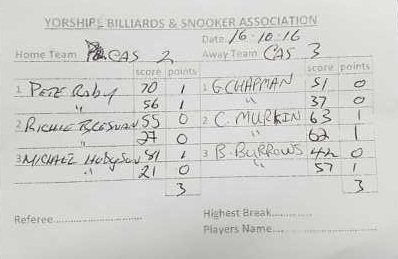 YORSHIRE BILLIARDS & SNOOKER ASSOCIATION
Date 16-10-16
Home Team CAS 2 Away Team CAS 3
score points score points
1 PETE Roby 70 1 1 G.CHAPMAN 51 0
" 56 1 " 37 0
2 RICHIE 55 0 2 C. MURKIN 63 1
" 27 0 " 62 1
3 MICHAEL HODGSON 81 1 3 B. BURROWS 42 0
" 21 0 " 57 1
3 3
Referee
Highest Break
Players Name